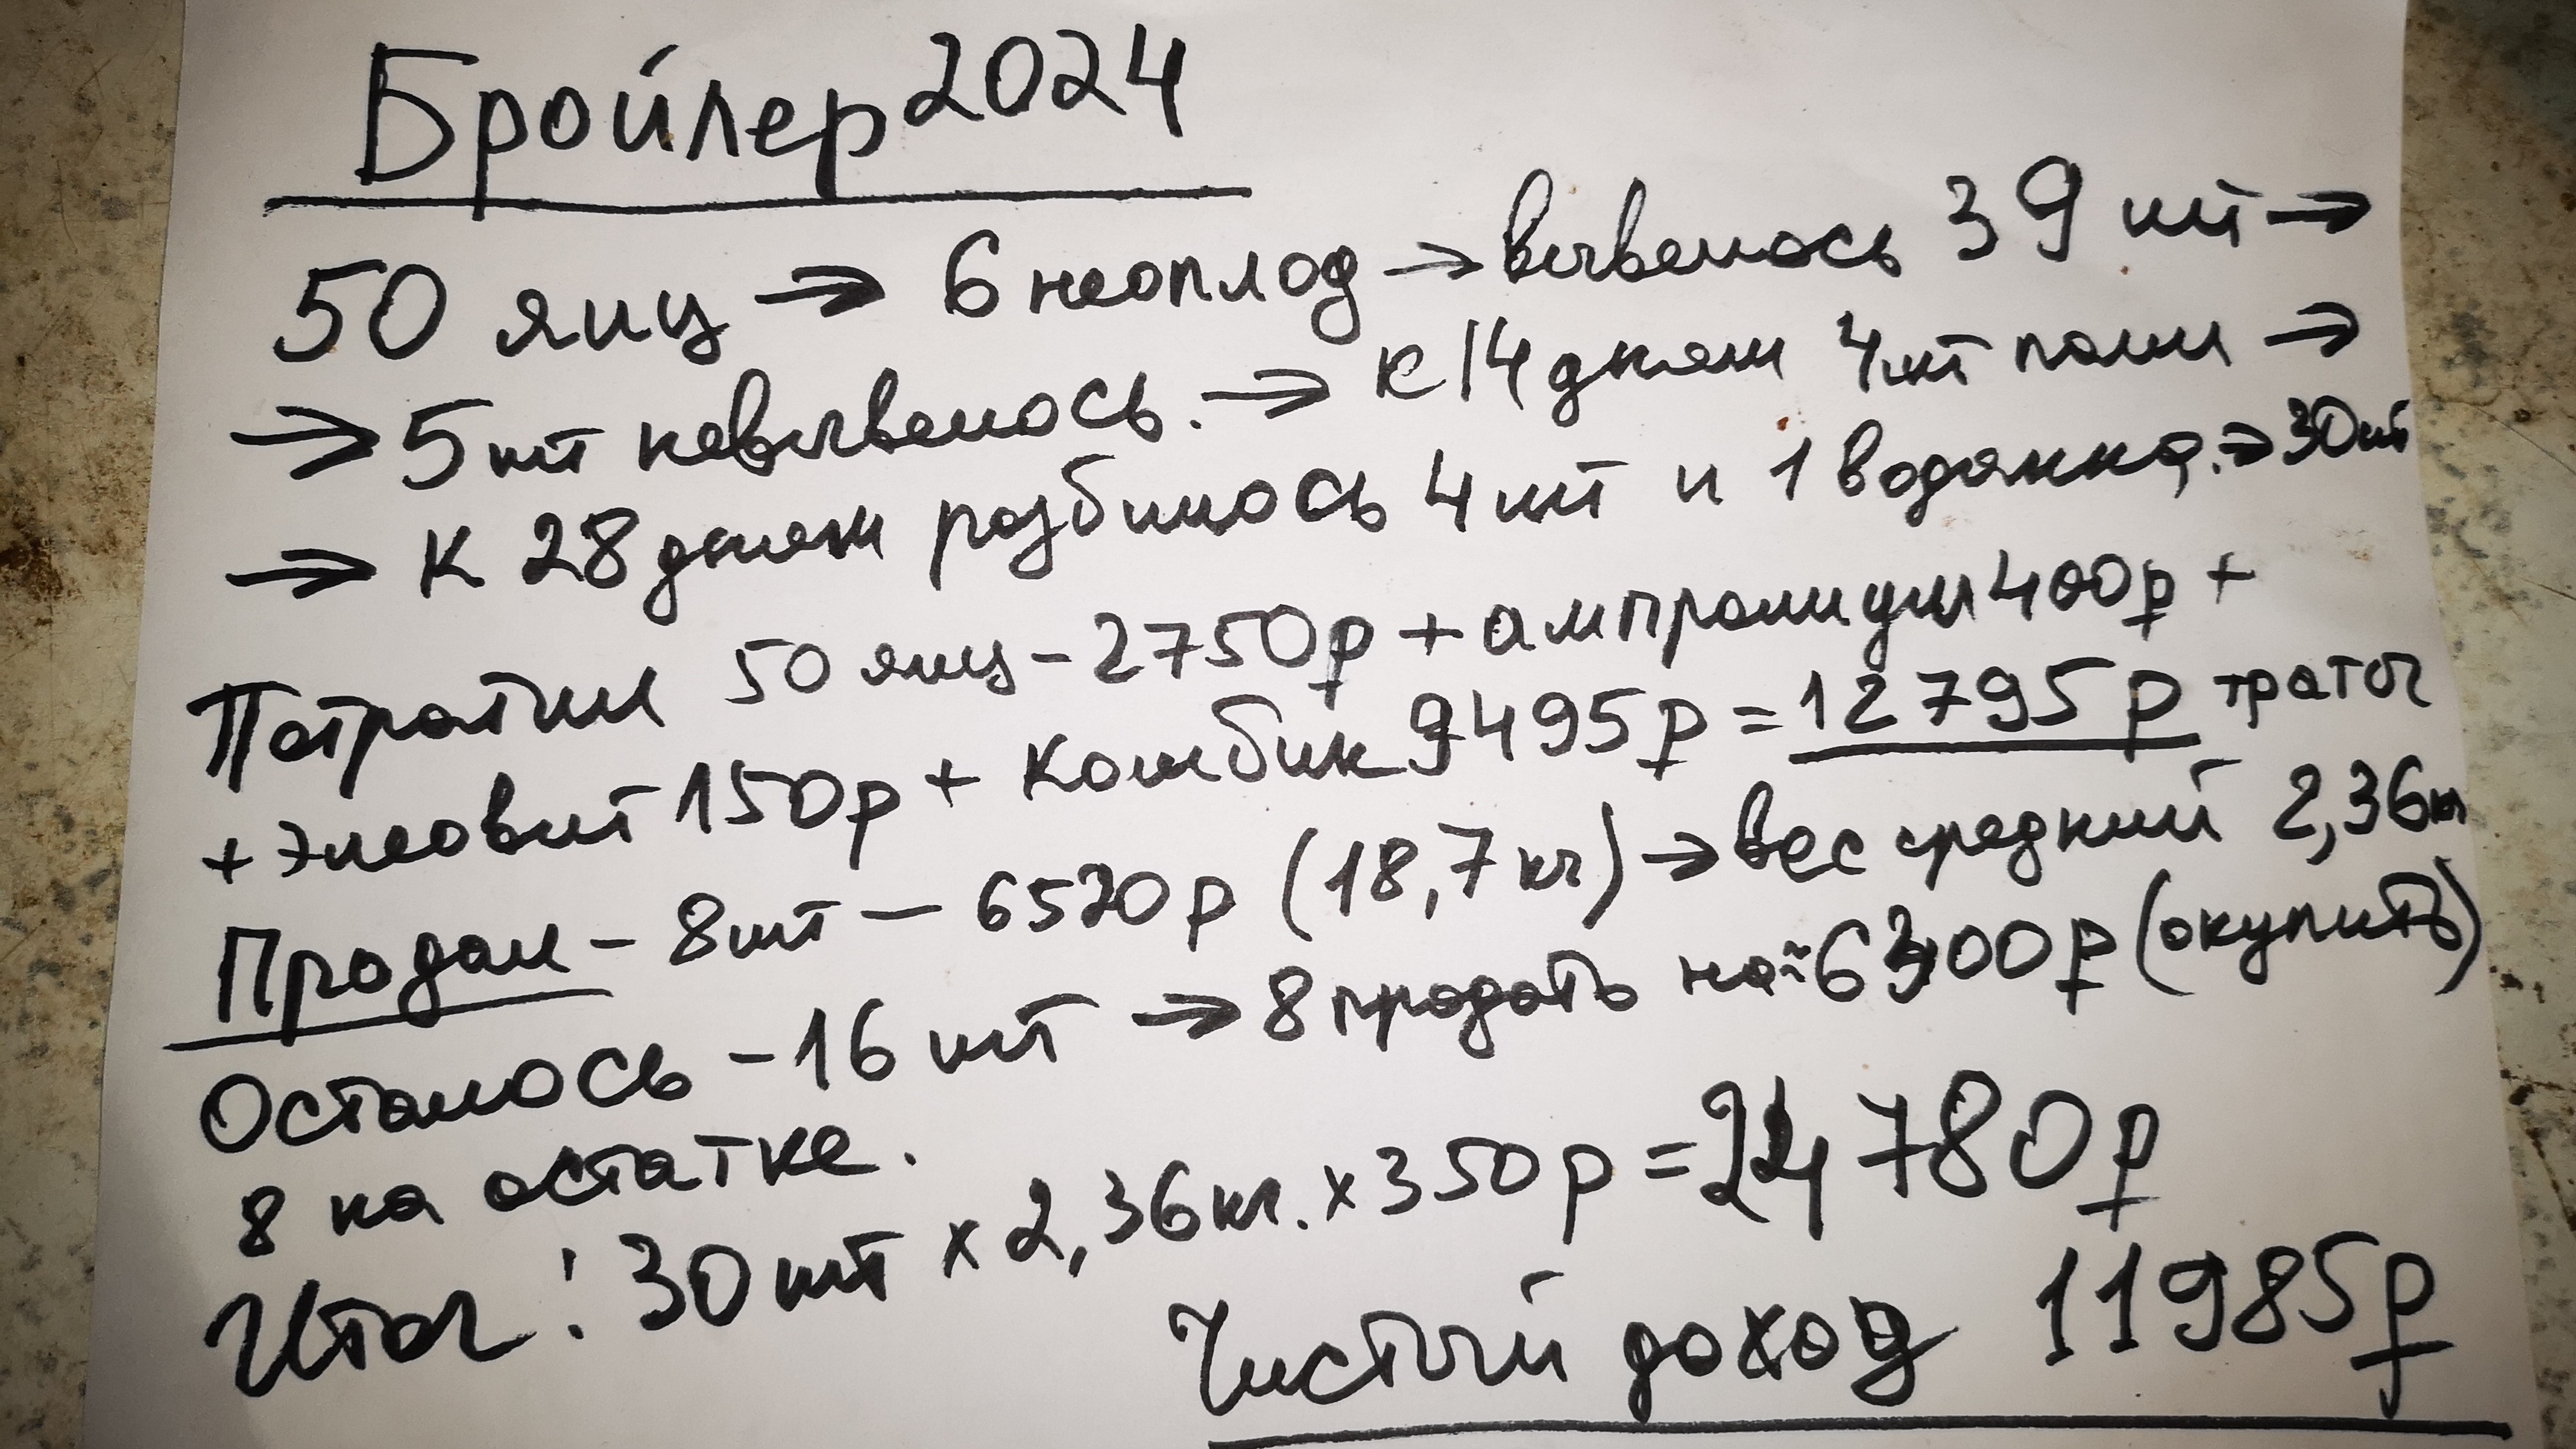 Бройлер 2024
50 яиц → 6 неоплод → вывелось 39 шт →
→ 5 шт невывелось. → к 14 дням 4 шт пали →
→ К 28 дням разбилось 4 шт и 1 водянка. → 30 шт
Потратил 50 яиц - 2750р + ампролиум 400р +
+ элеовит 150р + комбик 9495р = 12795р трат
Продал - 8 шт - 6520р (18,7 кг) → вес средний 2,36 кг
Осталось - 16 шт → 8 продать на ≈ 6300р (окупить)
8 на остатке.
Итог: 30 шт x 2,36 кг. x 350р = 24780р
Чистый доход 11985р